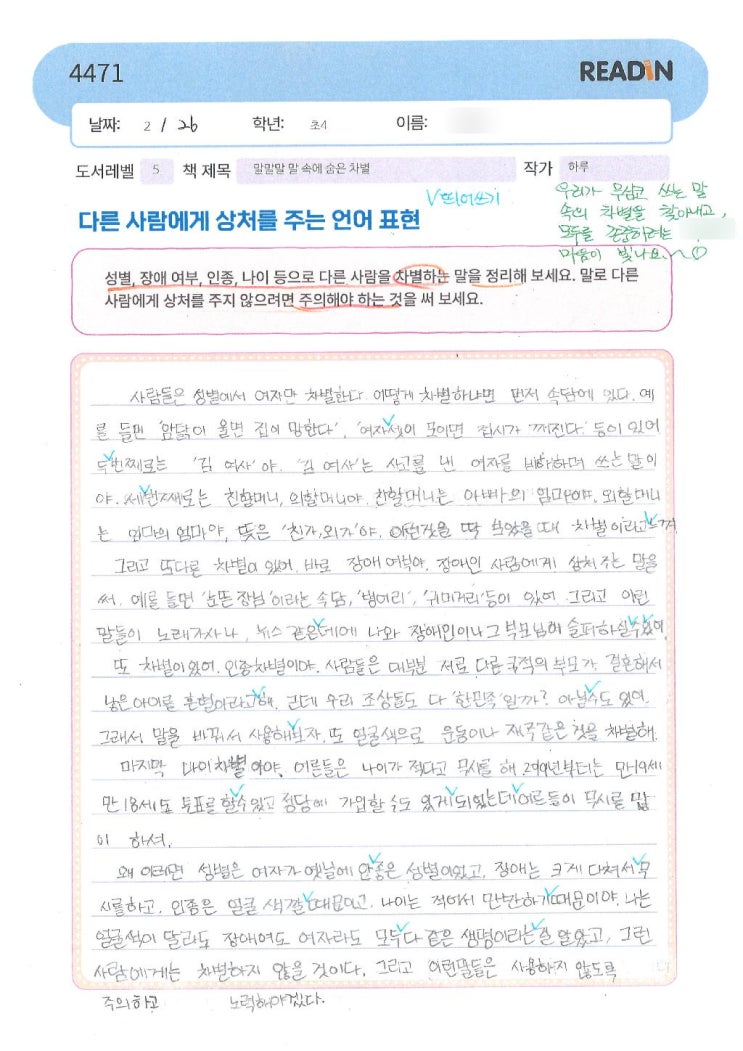 4471
READiN
날짜: 2 / 26 학년: 초4 이름:
도서레벨 5 책 제목 말말말 말 속에 숨은 차별 작가 하루
V띄어쓰기
우리가 무심코 쓰는 말
속의 차별을 찾아내고,
모두를 존중하려는
마음이 빛나요~♡
다른 사람에게 상처를 주는 언어 표현
성별, 장애 여부, 인종, 나이 등으로 다른 사람을 차별하는 말을 정리해 보세요. 말로 다른
사람에게 상처를 주지 않으려면 주의해야 하는 것을 써 보세요.
사람들은 성별에서 여자만 차별한다. 어떻게 차별하냐면 먼저 속담에 있다. 예
를 들면 '암탉이 울면 집이 망한다', '여자셋이 모이면 접시가 깨진다' 등이 있어
두번째로는 '김 여사'야. '김 여사'는 사고를 낸 여자를 비하하며 쓰는 말이
야. 세번째로는 친할머니, 외할머니야. 친할머니는 아빠의 엄마야. 외할머니
는 엄마의 엄마야, 뜻은 '친가, 외가'야. 이런것을 딱 봤을때 차별이라고느껴
그리고 또다른 차별이 있어. 바로 장애 여부야. 장애인 사람에게 상처 주는 말을
써. 예를 들면 '눈뜬 장님'이라는 속담, '벙어리', '귀머거리'등이 있어. 그리고 이런
말들이 노래가사나, 뉴스 같은데에 나와 장애인이나 그 부모님이 슬퍼하실수있어
또 차별이있어. 인종차별이야. 사람들은 대부분 서로 다른 국적의 부모가 결혼해서
낳은아이를 혼혈이라고해. 근데 우리 조상들도 다 '한민족'일까? 아닐수도 있어.
그래서 말을 바꿔서 사용해보자. 또 얼굴색으로 운동이나 재주같은 것을 차별해.
마지막 나이차별이야. 어른들은 나이가 적다고 무시를 해 2019년부터는 만19세
만18세도 투표를 할수있고 정당에 가입할 수도 있게되었는데어른들이 무시를 많
이 하셔.
왜 이러면 성별은 여자가 옛날에 안좋은 성별이었고, 장애는 크게 다쳐서무
시를하고, 인종은 얼굴 색깔때문이고. 나이는 적어서 만만하기때문이야. 나는
얼굴색이 달라도 장애여도 여자라도 모두다 같은 생명이라는걸 알았고, 그런
사람에게는 차별하지 않을 것이다. 그리고 이런말들은 사용하지 않도록
주의하고 노력해야겠다.